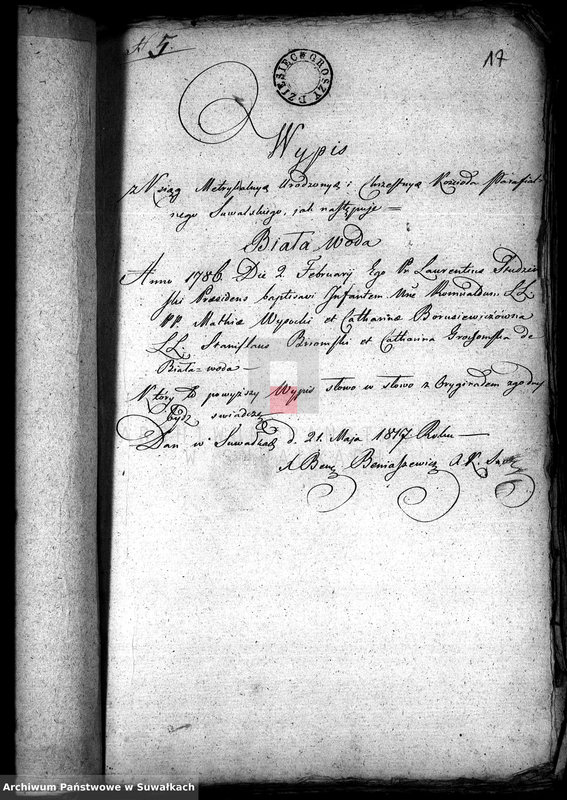 N 5.
17
DZIESIĘĆ GROSZY
Wypis
z Xsiąg Metrykalnych Urodzonych i Chrzestnych Kościoła Parafial-
nego Suwalskiego, jak następuje =
Biała Woda
Anno 1786. Die 2. February Ego Pr. Laurentius Studziń-
ski Præsidens baptisavi Infantem Nne Romualdum LL.
PP. Mathiæ Wysocki et Catharinæ Borusiewiczówna
LL. Stanislaus et Catharina Grochowska de
Biała-woda —
Który to powyższy Wypis słowo w słowo z Oryginałem zgodny
bydź swiadczę
Dan w Suwałkach d. 21. Maja 1817 Roku —
X Beniaszewicz
Archiwum Państwowe w Suwałkach